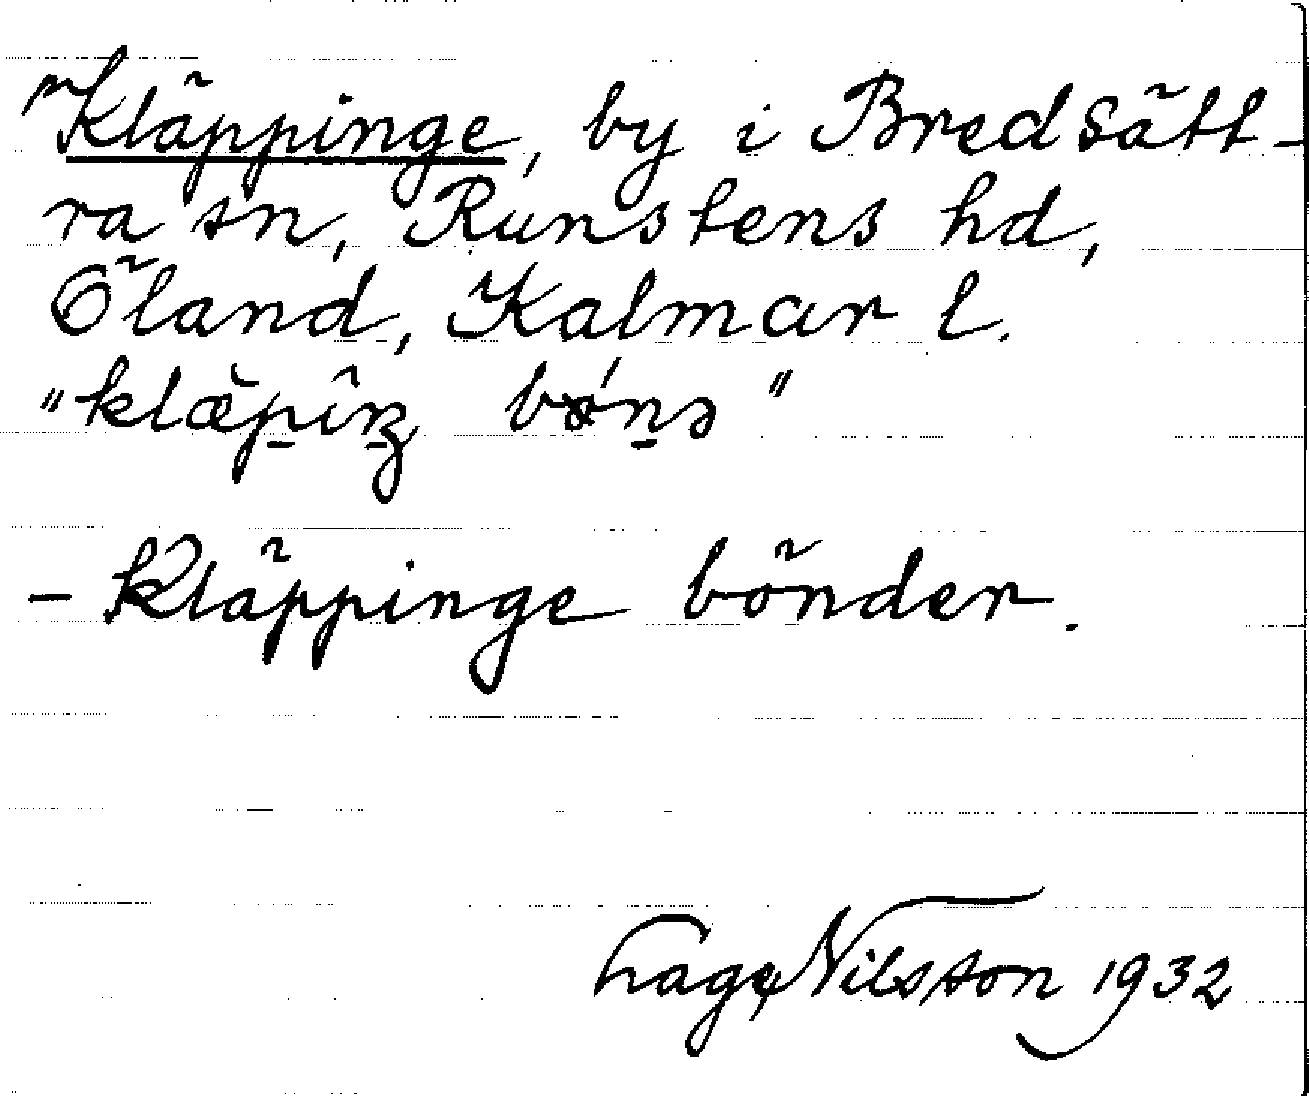 "Kläppinge, by i Bredsätt-
ra sn, Runstens hd,
Öland, Kalmar l.
"klæ̀p̠îŋ bǿn̠ə"
- Kläppinge bönder.
Nilsson 1932